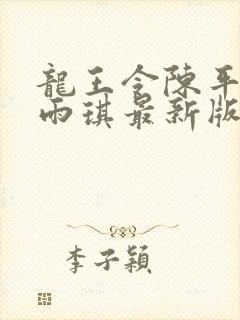 龍王令陳平
雨琪最新版
李子穎